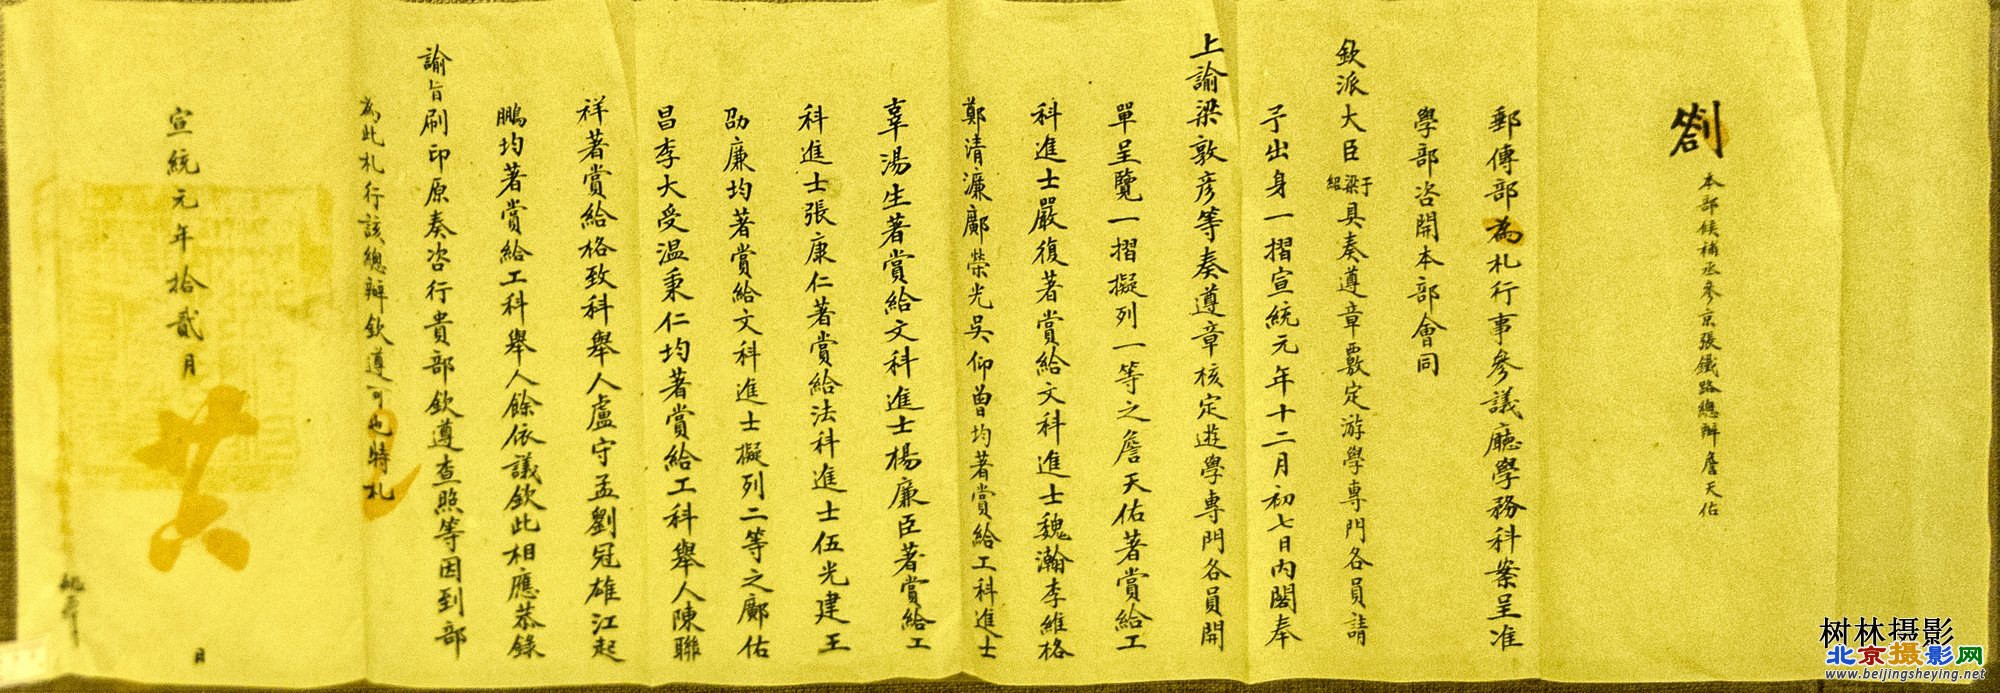 劄
本部候補丞參京張鐵路總辦詹天佑
郵傳部為札行事參議廳學務科案呈准
學部咨開本部會同
欽派大臣于梁紹具奏遵章覈定游學專門各員請
予出身一摺宣統元年十二月初七日內閣奉
上諭梁敦彥等奏遵章核定遊學專門各員開
單呈覽一摺擬列一等之詹天佑著賞給工
科進士嚴復著賞給文科進士魏瀚李維格
鄭清濂鄺榮光吳仰曾均著賞給工科進士
辜湯生著賞給文科進士楊廉臣著賞給工
科進士張康仁著賞給法科進士伍光建王
劭廉均著賞給文科進士擬列二等之鄺佑
昌李大受溫秉仁均著賞給工科舉人陳聯
祥著賞給格致科舉人盧守孟劉冠雄江起
鵬均著賞給工科舉人餘依議欽此相應恭錄
諭旨刷印原奏咨行貴部欽遵查照等因到部
為此札行該總辦欽遵可也特札
宣統元年拾貳月
日
树林摄影
北京摄影网
www.beijingsheying.net